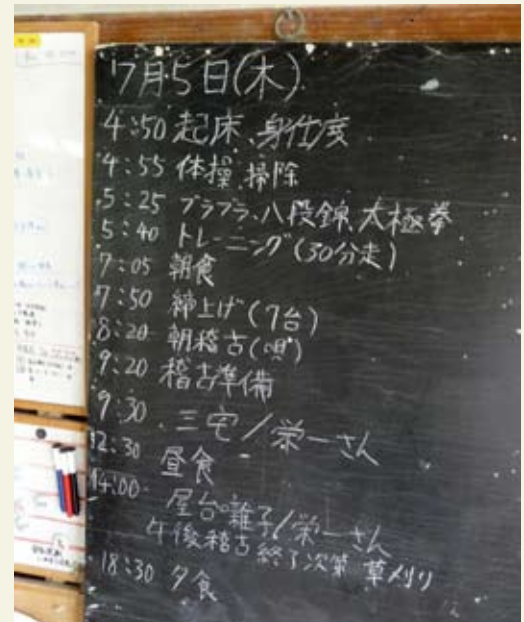 7月5日(木)
4:50 起床、身仕度
4:55 体操、掃除
5:25 ブラブラ、八段錦、太極拳
5:40 トレーニング(30分走)
7:05 朝食
7:50 締上げ(7台)
8:20 朝稽古(唄)
9:20 稽古準備
9:30 三宅/栄一さん
12:30 昼食
14:00 屋台囃子/栄一さん
午後稽古終了次第 草刈り
18:30 夕食